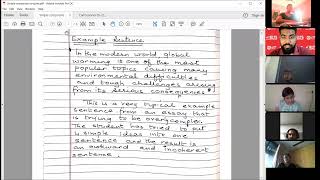 Example Sentence
In the modern world global
warming is one of the most
popular topics causing many
environmental difficulties
and tough challenges arising
from its serious consequences.
This is a very typical example
sentence from an essay that
is trying to be overcomplex.
The student has tried to put
4 simple ideas into one
sentence and the result is
an awkward and incoherent
sentence.